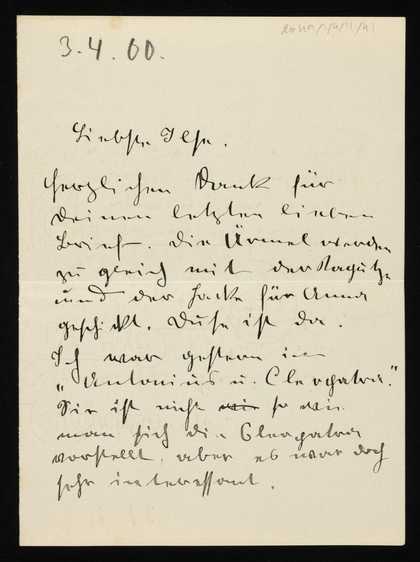 3.4.00.
Liebste Ilse.
Herzlichen Dank für
Deinen letzten lieben
Brief. Die Ärmel werden
zu gleich mit der
und der Jacke für Anna
geschickt. Duse ist da.
Ich war gestern in
„Antonius u. Cleopatra."
Sie ist nicht so wie
man sich die Cleopatra
vorstellt, aber es war doch
sehr interessant.